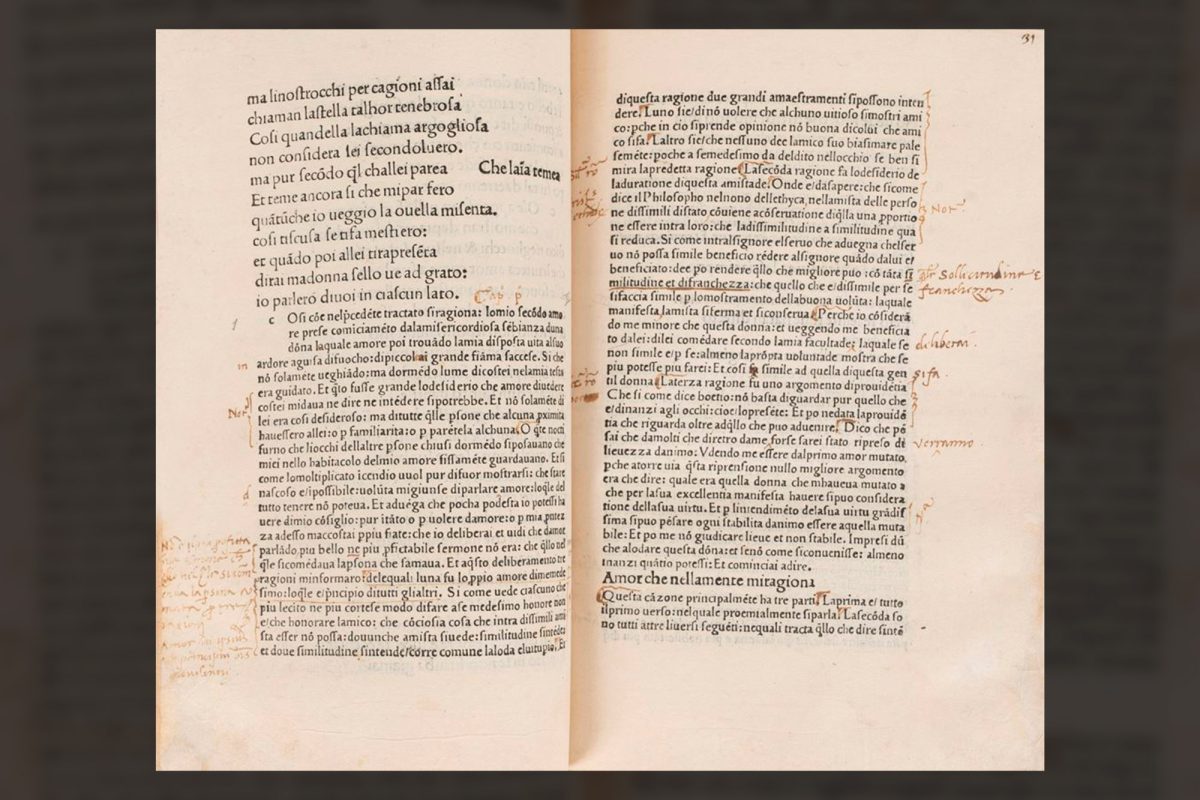 ma linostrocchi per cagioni assai
chiaman lastella talhor tenebrosa
Cosi quandella lachiama argogliosa
non considera lei secondoluero.
ma pur secōdo ql challei parea Che laĩa temea
Et teme ancora si che mipar fero
quātūche io ueggio la ouella misenta.
cosi tiscusa se tifa mestiero:
et quādo poi allei tirapresēta
dirai madonna sello ue ad grato:
io parlero diuoi in ciascun lato. Cap. p
1
c Osi cōe nelpcedēte tractato siragiona: lomio secōdo amo
re prese comiciamēto dalamisericordiosa sēbianza duna
dōna laquale amor poi trouādo lamia disposta uita alsuo
in ardore aguisa difuocho: dipiccolai grande fiāma saccese. Si che
nō solamēte ueghiādo: ma dormēdo lume dicostei nelamia testa
era guidato. Et q̄to fusse grande lodesiderio che amore diuedere
Not costei midaua ne dire ne intēdere sipotrebbe. Et nō solamēte di
lei era cosi desideroso: ma ditutte q̄lle psone che alcuna pximita
hauessero allei: o p familiarita: o p parētela alchuna. O q̄te nocti
furno che liocchi dellaltre psone chiusi dormēdo siposauano che
miei nello habitacolo delmio amore fissamēte guardauano. Et si
come lomoltiplicato icendio uuol pur difuor mostrarsi: che stare
d nascoso e/ipossibile: uolūta migiunse diparlare amore: loq̄le del
tutto tenere nō poteua. Et aduēga che pocha podesta io potessi ha
uere dimio cōsiglio: pur itāto o p uolere damore: o p mia ptez
za adesso maccostai p piu fiate: che io deliberai et uidi che damor
parlādo piu bello ne piu pfictabile sermone nō era: che q̄llo nel
q̄le sicomēdaua lapsona che samaua. Et aq̄sto deliberamento tre
ragioni minformaro: delequali luna fu lo ppio amore dimedesi
simo: loq̄le e/pncipio ditutti glialtri. Si come uede ciascuno che
piu lecito ne piu cortese modo difare ase medesimo honore non
e/che honorare lamico: che cōciosia cosa che intra dissimili ami
sta esser nō possa: douunche amista siuede: similitudine sintēde
et doue similitudine sintende/corre comune laloda eluitupio. Et
31
diquesta ragione due grandi amaestramenti sipossono inten
dere. Luno sie/di nō uolere che alchuno uitioso simostri ami
co: pche in cio siprende opinione nō buona dicolui che ami
co sifa. Laltro sie/che nessuno dee lamico suo biasimare pale
semēte: poche a semedesimo da deldito nellocchio se ben si
mira lapredetta ragione. Lasecōda ragione fa lodesiderio de
laduratione diquesta amistade. Onde e/dasapere: che sicome
dice il Philosopho nelnono dellethyca, nellamista delle perso
ne dissimili distato cōuiene acōseruatione diq̄lla una pportio Not.
ne essere intra loro: che ladissimilitudine a similitudine qua
si reduca. Si come intralsignore elseruo che aduegna chelser
uo nō possa simile beneficio rēdere alsignore quādo dalui e/
beneficiato: dee po rendere q̄llo che migliore puo: cō tāta si Sollicitudine &
militudine et difranchezza: che quello che e/dissimile per se franchezza
sifaccia simile p lomostramento dellabuona uolūta: laquale
manifesta lamista siferma et siconserua. Perche io cōsiderā
do me minore che questa donna: et ueggendo me beneficia
to dalei: dilei comēdare secondo lamia facultade: laquale se deliberai
non simile e/p se: almeno laprōpta uoluntade mostra che se
piu potesse piu farei: Et cosi fa simile ad quella diquesta gen sifa.
til donna. Laterza ragione fu uno argomento diprouidētia
Che si come dice boetio: nō basta diguardar pur quello che
e/dinanzi agli occhi: cioe/lopresēte: Et po nedata laprouidē
tia che riguarda oltre adq̄llo che puo aduenire. Dico che pō
sai che damolti che diretro dame forse sarei stato ripreso di verranno
lieuezza danimo: Vdendo me essere dalprimo amor mutato,
pche atorre uia q̄sta riprensione nullo migliore argomento
era che dire: quale era quella donna che mhaueua mutato a
che per lasua excellentia manifesta hauere sipuo considera
tione dellasua uirtu. Et p lintendimēto delasua uirtu grādis
sima sipuo pēsare ogni stabilita danimo essere aquella muta
bile: Et po me nō giudicare lieue et non stabile. Impresi dū
che alodare questa dōna: et senō come siconuenisse: almeno
inanzi quātio potessi: Et cominciai adire.
Amor che nellamente miragiona
Questa cāzone principalmēte ha tre parti. Laprima e/ tutto
ilprimo uerso: nelquale proemialmente siparla. Lasecōda so
no tutti altre liuersi seguēti: nequali tracta q̄llo che dire sintē